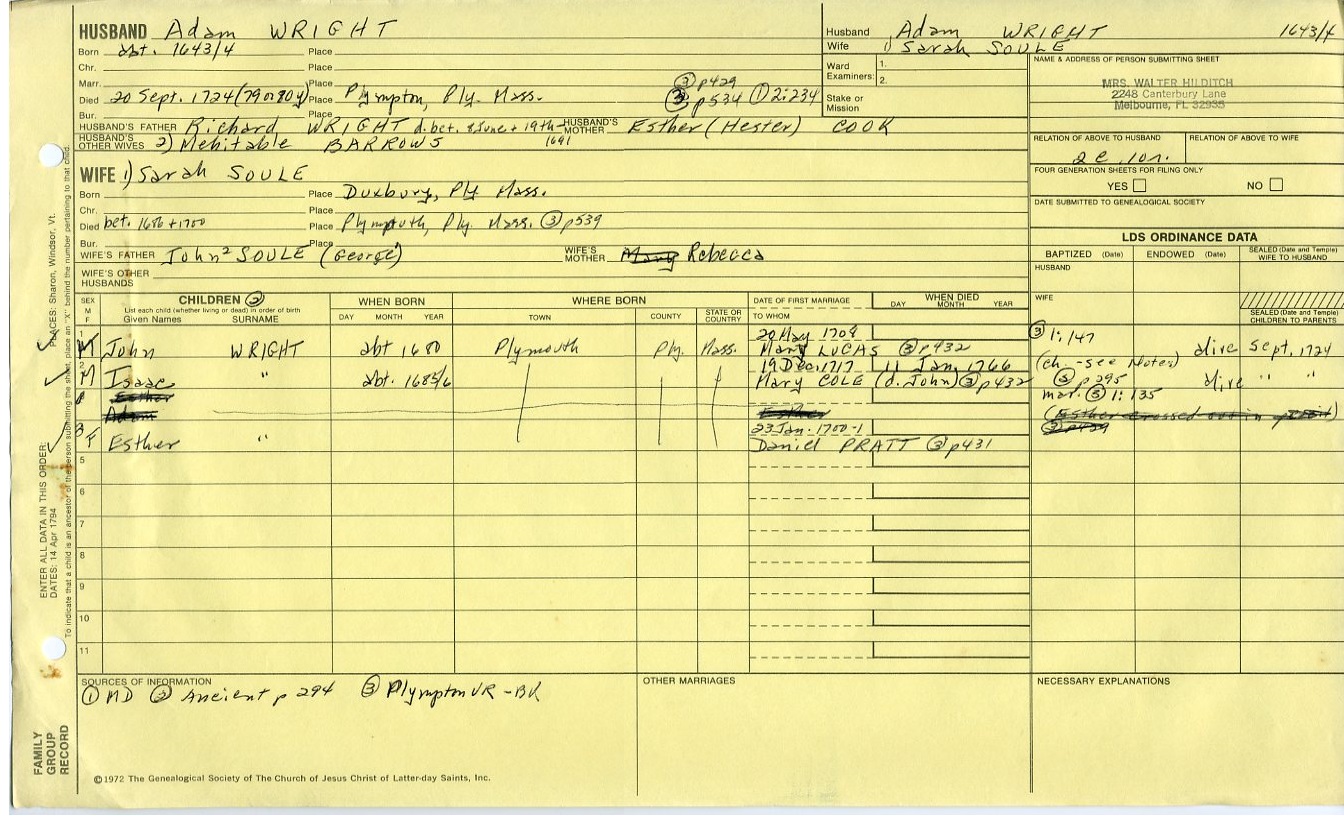 HUSBAND Adam WRIGHT
Born abt. 1643/4 Place
Chr. Place
Marr. Place ② p429
Died 20 Sept. 1724 (79 or 80 y) Place Plympton, Ply. Mass. ③ p534 ① 2:234
Bur. Place
HUSBAND'S FATHER Richard WRIGHT d. bet. 8 June + 19th - 1691 HUSBAND'S MOTHER Esther (Hester) COOK
HUSBAND'S OTHER WIVES 2) Mehitable BARROWS
Husband Adam WRIGHT 1643/4
Wife 1) Sarah SOULE
Ward Examiners: 1.
2.
Stake or Mission
NAME & ADDRESS OF PERSON SUBMITTING SHEET
MRS. WALTER HILDITCH
2248 Canterbury Lane
Melbourne, FL 32935
RELATION OF ABOVE TO HUSBAND RELATION OF ABOVE TO WIFE
FOUR GENERATION SHEETS FOR FILING ONLY
YES NO
DATE SUBMITTED TO GENEALOGICAL SOCIETY
WIFE 1) Sarah SOULE
Born Place Duxbury, Ply Mass.
Chr. Place
Died bet. 1686 + 1700 Place Plymptuth, Ply. Mass. ③ p539
Bur. Place
WIFE'S FATHER John² SOULE (George) WIFE'S MOTHER Mary Rebecca
WIFE'S OTHER HUSBANDS
LDS ORDINANCE DATA
BAPTIZED (Date) ENDOWED (Date) SEALED (Date and Temple) WIFE TO HUSBAND
HUSBAND
WIFE
SEALED (Date and Temple) CHILDREN TO PARENTS
SEX M F CHILDREN ② WHEN BORN WHERE BORN DATE OF FIRST MARRIAGE WHEN DIED
List each child (whether living or dead) in order of birth
Given Names SURNAME DAY MONTH YEAR TOWN COUNTY STATE OR COUNTRY TO WHOM DAY MONTH YEAR
1 20 May 1708 ③ 1:147
M John WRIGHT abt 1680 Plymouth Ply. Mass. Mary LUCAS ③ p432 alive Sept. 1724
2 19 Dec. 1717 11 Jan. 1766 (ch. - see Notes)
M Isaac " abt. 1685/6 Mary COLE (d. John) ③ p432 ③ p295 alive " "
Esther mar. ③ 1:135
Adam Esther
3 23 Jan. 1700-1 ③ p429
F Esther " Daniel PRATT ③ p431
5
6
7
8
9
10
11
SOURCES OF INFORMATION
① MD ② Ancient p 294 ③ Plympton VR - BK
OTHER MARRIAGES
NECESSARY EXPLANATIONS
©1972 The Genealogical Society of The Church of Jesus Christ of Latter-day Saints, Inc.
FAMILY GROUP RECORD
ENTER ALL DATA IN THIS ORDER:
DATES: 14 Apr 1794 PLACES: Sharon, Windsor, Vt.
To indicate that a child is an ancestor of the person submitting the sheet, place an "X" behind the number pertaining to that child.